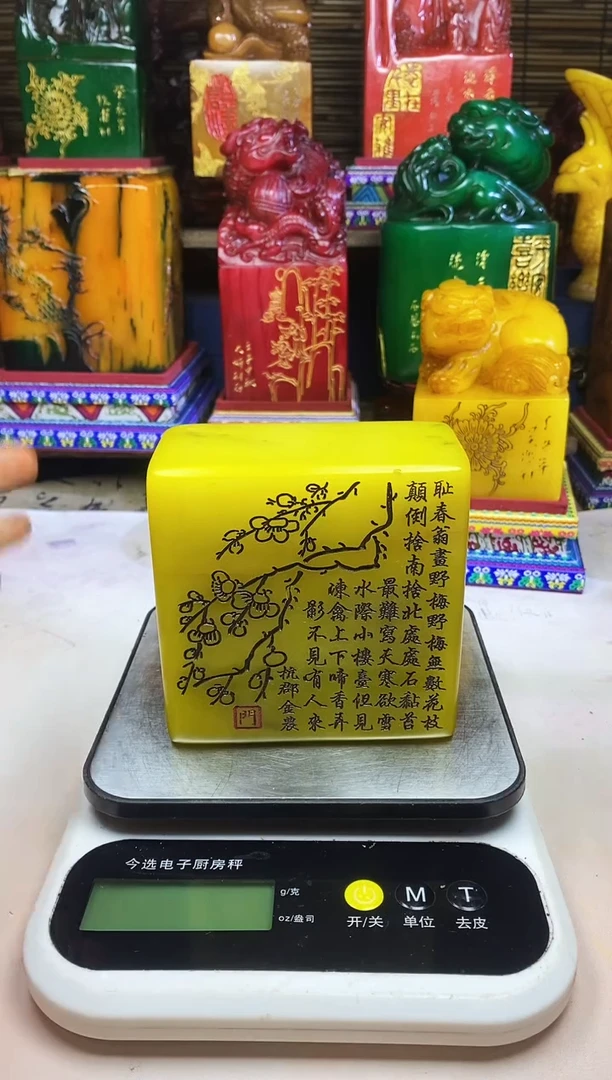 耻春翁畫野梅野梅無數花枝
顛倒捨南捨北處處石黏苔
最難寫天寒欲雪
水際小樓臺但見
凍禽上下啼香弄
影不見有人來
杭郡金農
門
今选电子厨房秤
g/克
oz/盎司
M
T
开/关
单位
去皮